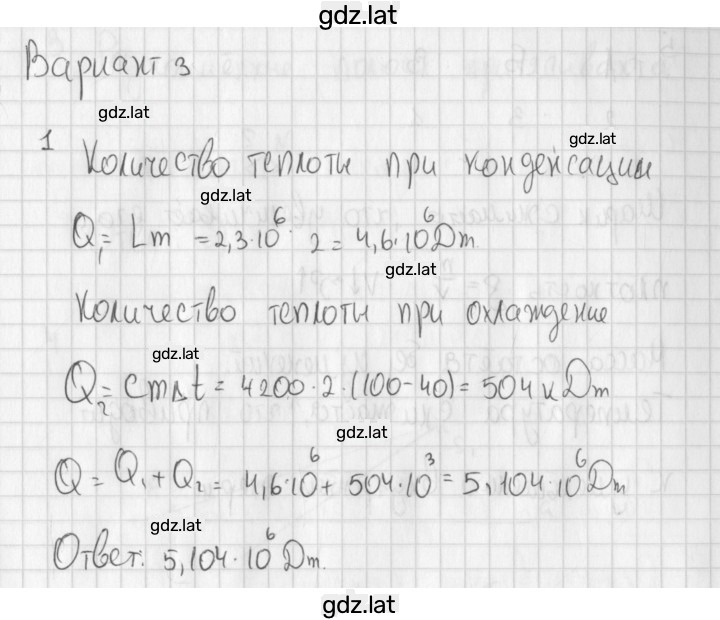 gdz.lat
Вариант 3
gdz.lat
gdz.lat
1 Количество теплоты при конденсации
gdz.lat
Q₁ = Lm = 2,3·10⁶· 2 = 4,6·10⁶Dm.
gdz.lat
Количество теплоты при охлаждение
gdz.lat
Q₂ = cmΔt = 4200·2·(100-40) = 504кDm
gdz.lat
Q = Q₁ + Q₂ = 4,6·10⁶ + 504·10³ = 5,104·10⁶Dm
gdz.lat
Ответ: 5,104·10⁶Dm.
gdz.lat